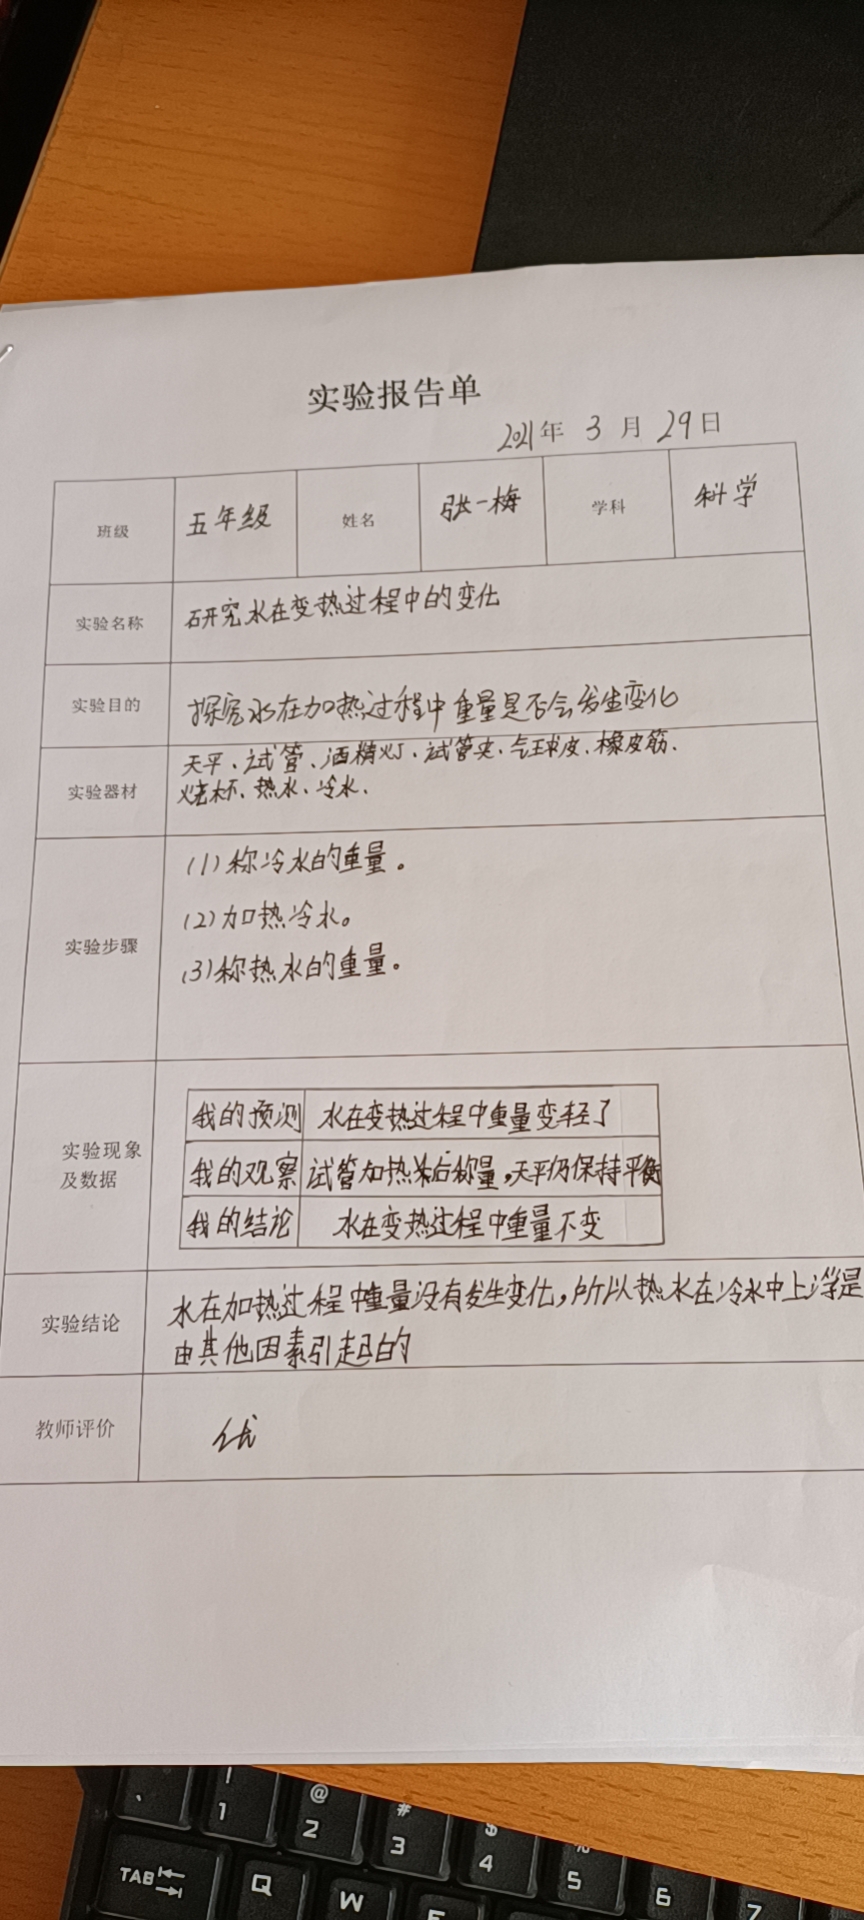 实验报告单
2021年 3 月 29日
班级 五年级 姓名 张一梅 学科 科学
实验名称 研究水在变热过程中的变化
实验目的 探究水在加热过程中重量是否会发生变化
实验器材 天平、试管、酒精灯、试管夹、气球皮、橡皮筋、
烧杯、热水、冷水、
实验步骤 (1)称冷水的重量。
(2)加热冷水。
(3)称热水的重量。
实验现象
及数据
我的预测 水在变热过程中重量变轻了
我的观察 试管加热后称量,天平仍保持平衡
我的结论 水在变热过程中重量不变
实验结论 水在加热过程中重量没有发生变化,所以热水在冷水中上浮是
由其他因素引起的
教师评价 优
! @ # $ %
1 2 3 4 5 6 7
TAB Q W E